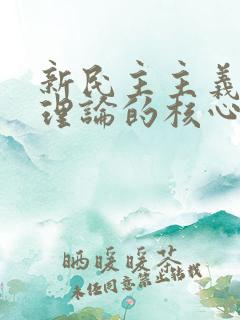 新民主主義
理論的核心
晒暖暖茶
未经同意禁止转载